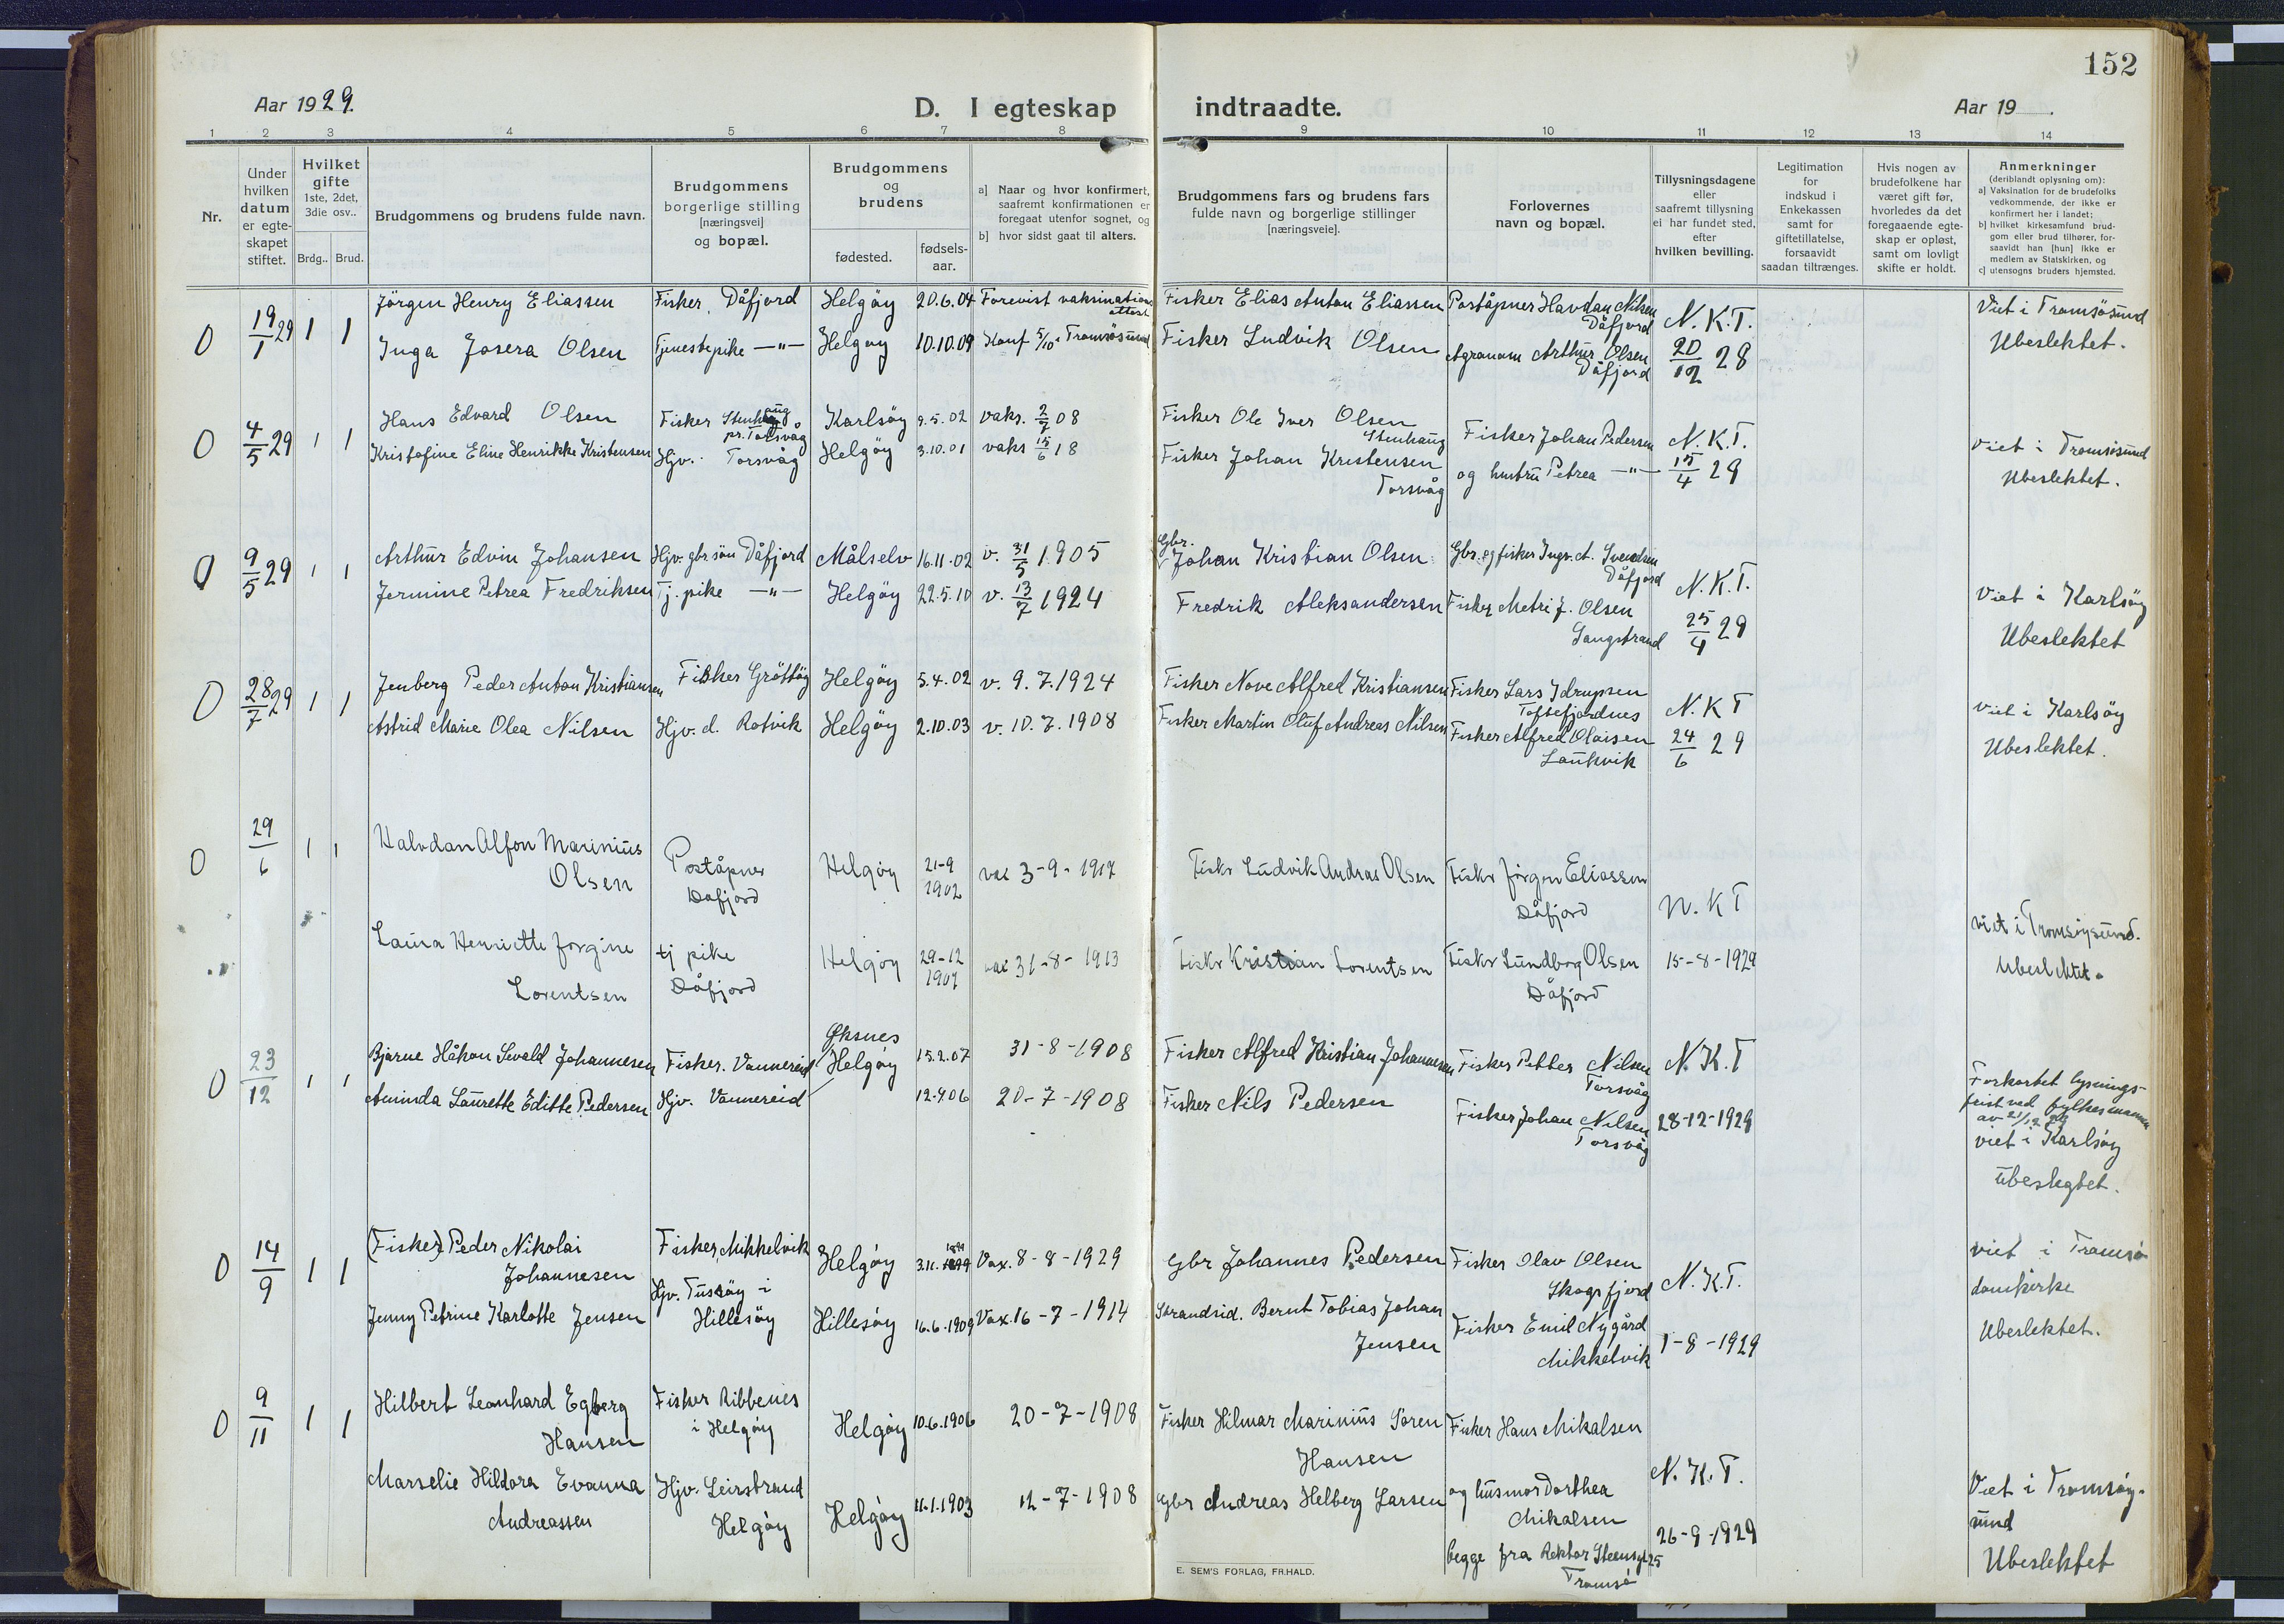 152
Aar 1929.
D. I egteskap indtraadte.
Aar 19 .
1 2 3 4 5 6 7 8 9 10 11 12 13 14
Nr.
Under hvilken datum er egteskapet stiftet.
Hvilket gifte 1ste, 2det, 3die osv..
Brdg.. Brud.
Brudgommens og brudens fulde navn.
Brudgommens borgerlige stilling [næringsvei] og bopæl.
Brudgommens og brudens
fødested.
fødsels-aar.
a] Naar og hvor konfirmert, saafremt konfirmationen er foregaat utenfor sognet, og
b] hvor sidst gaat til alters.
Brudgommens fars og brudens fars fulde navn og borgerlige stillinger [næringsveie].
Forlovernes navn og bopæl.
Tillysningsdagene eller saafremt tillysning ei har fundet sted, efter hvilken bevilling.
Legitimation for indskud i Enkekassen samt for giftetillatelse, forsaavidt saadan tiltrænges.
Hvis nogen av brudefolkene har været gift før, hvorledes da det foregaaende egteskap er opløst, samt om lovligt skifte er holdt.
Anmerkninger (deriblandt oplysning om):
a] Vaksination for de brudefolks vedkommende, der ikke er konfirmert her i landet;
b] hvilket kirkesamfund brudgom eller brud tilhører, forsaavidt han [hun] ikke er medlem av Statskirken, og
c] utensogns bruders hjemsted.
0 19/1 29 1 1
Jörgen Henry Eliassen Fisker, Dåfjord Helgöy 20.6.04 Forevist vaksinations attest Fisker Elias Anton Eliassen Poståpner Havdan Nilsen Dåfjord N.K.T. Viet i Tromsösund
Inga Josera Olsen Tjenestepike —"— Helgöy 10.10.09 Konf 5/10 i Tromsösund Fisker Ludvik Olsen Agronom Arthur Olsen Dåfjord 20/12 28 Ubeslektet.
0 4/5 29 1 1
Hans Edvard Olsen Fisker Stenhaug pr. Torsvåg Karlsöy 9.5.02 vaks. 2/7 08 Fisker Ole Iver Olsen Stenhaug Fisker Johan Pedersen N.K.T. Viet i Tromsösund
Kristofine Eline Henrikke Kristensen Hjv. Torsvåg Helgöy 3.10.01 vaks 15/6 18 Fisker Johan Kristensen Torsvåg og hustru Petrea —"— 15/4 29 Ubeslektet.
0 9/5 29 1 1
Arthur Edvin Johansen Hjv. gbr. sön Dåfjord Målselv 16.11.02 v. 31/5 1905 Gbr. Johan Kristian Olsen Gbr. og fisker Ingv. A. Svendsen Dåfjord N.K.T. Viet i Karlsöy
Jermine Petrea Fredriksen Tj. pike —"— Helgöy 22.5.10 v. 13/7 1924 Fredrik Aleksandersen Fisker Metri J. Olsen Langstrand 25/4 29 Ubeslektet
0 28/7 29 1 1
Jenberg Peder Anton Kristiansen Fisker Gröttöy Helgöy 5.4.02 v. 9.7.1924 Fisker Nove Alfred Kristiansen Fisker Lars Idrupsen Toftefjordnes N.K T Viet i Karlsöy
Astrid Marie Olea Nilsen Hjv. d. Rotvik Helgöy 2.10.03 v. 10.7.1908 Fisker Martin Oluf Andreas Nilsen Fisker Alfred Olaisen Laukvik 24/6 29 Ubeslektet.
0 29/6 1 1
Halvdan Alfon Marinius Olsen Poståpner Dåfjord Helgöy 21-9 1902 vac 3-9-1917 Fisker Ludvik Andras Olsen Fisker Jörgen Eliassen Dåfjord N.K T viet i Tromsöysund.
Laura Henriette Jorgine Lorentsen tj pike Dåfjord Helgöy 29-12 1907 vac 31-8-1913 Fisker Kristian Lorentsen Fisker Lundborg Olsen Dåfjord 15-8-1929 Ubeslektet.
0 23/12 1 1
Bjarne Håkon Sevald Johannesen Fisker. Vannereid Øksnes Helgöy 15.2.07 31-8-1908 Fisker Alfred Kristian Johannesen Fisker Petter Nilsen Torsvåg N.K.T Forkortet lysningsfrist ved fylkesmannen av 21/12 29
Aminda Laurette Editte Pedersen Hjv. Vannereid 12.4.06 20-7-1908 Fisker Nils Pedersen Fisker Johan Nilsen Torsvåg 28-12-1929 viet i Karlsöy ubeslegtet.
0 14/9 1 1
(Fisker) Peder Nikolai Johannesen Fisker, Mikkelvik Helgöy 3.11. Vax. 8-8-1929 Gbr Johannes Pedersen Fisker Olav Olsen Skogsfjord N.K.T. viet i Tromsö domkirke
Jenny Petrine Karlotte Jensen Hjv. Tussöy i Hillesöy Hillesöy 16.6.1909 Vax. 16-7-1914 Strandsid. Bernt Tobias Johan Jensen Fisker Emil Nygård Mikkelvik 1-8-1929 Ubeslektet.
0 9/11 1 1
Hilbert Leonhard Egberg Hansen Fisker Ribbenes i Helgöy Helgöy 10.6.1906 20-7-1908 Fisker Hilmar Marinius Soren Hansen Fisker Hans Mikalsen N.K.T. Viet i Tromsöysund
Marselie Hildora Evanna Andreassen Hjv. Leirstrand Helgöy Helgöy 11.1.1903 12-7-1908 Gbr Andreas Helberg Larsen og husmor Dorthea Mikalsen begge fra Rektor Steensgt 25 Tromsö 26-9-1929 Ubeslektet
E. SEM'S FORLAG, FR.HALD.